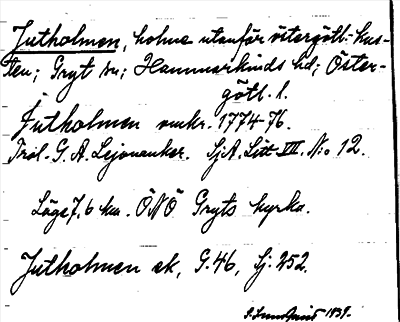 Jutholmen, holme utanför östergötl. kus-
ten; Gryt sn; Hammarkinds hd; Öster-
götl. l.
Jutholmen omkr. 1774-76.
Trol. G. A. Lejonanker. SjA. Litt VII. No 12.
Läge 7,6 km. ÖNÖ Gryts kyrka.
Jutholmen ek, G. 46, Sj. 252.
1939.